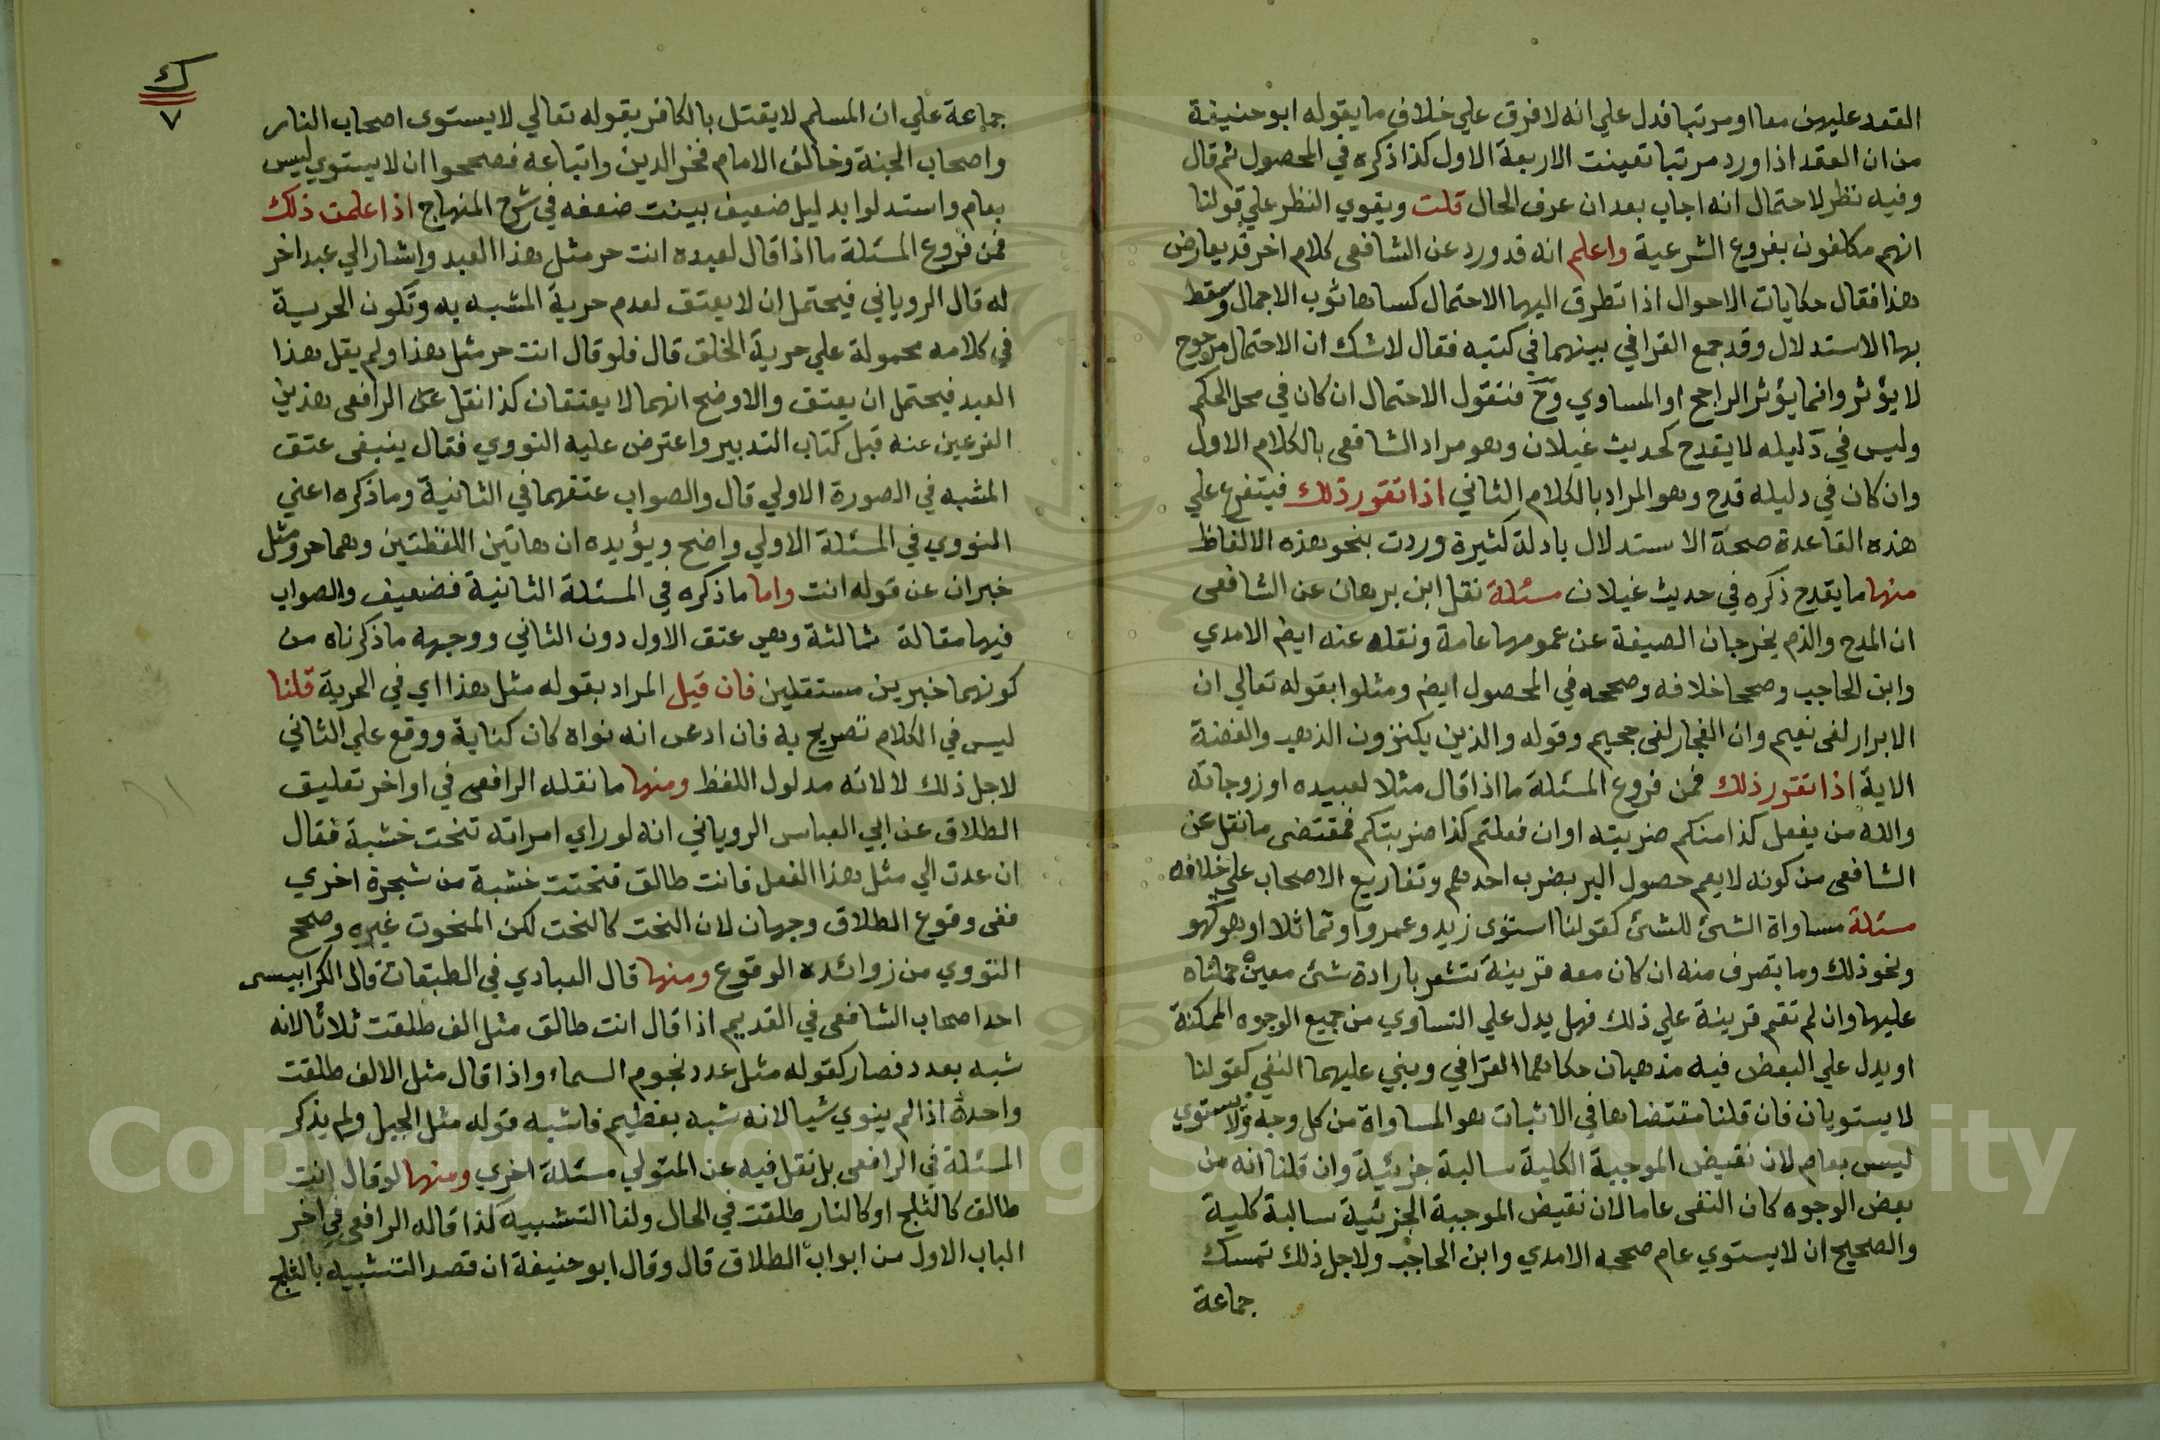 العقد عليهن معا او مرتبا فدل علي انه لا فرق علي خلاف ما يقوله ابو حنيفة
من ان العقد اذا ورد مرتبا تعينت الاربعة الاول كذا ذكره في المحصول ثم قال
وفيه نظر لاحتمال انه اجاب بعد ان عرف الحال قلت ويقوي النظر علي قولنا
انهم مكلفون بفروع الشرعية واعلم انه قد ورد عن الشافعى كلام اخر قد يعارض
هذا فقال حكايات الاحوال اذا تطرق اليها الاحتمال كساها ثوب الاجمال وسقط
بها الاستدلال وقد جمع القرافي بينهما في كتبه فقال لا شك ان الاحتمال مرجوح
لا يؤثر وانما يؤثر الراجح او المساوي وح فنقول الاحتمال ان كان في محل الحكم
وليس في دليله لا يقدح كحديث غيلان وهو مراد الشافعى بالكلام الاول
وان كان في دليله قدح وهو المراد بالكلام الثاني اذا تقور ذلك فيتفرع علي
هذه القاعدة صحة الاستدلال بادلة كثيرة وردت بنحو هذه الالفاظ
منها ما يقدح ذكره في حديث غيلان مسئلة نقل ابن برهان عن الشافعى
ان المدح والذم يخرجان الصيغة عن عمومها عامة ونقله عنه ايضم الامدي
وابن الحاجب وصححا خلافه وصححه في المحصول ايضم ومثلوا بقوله تعالي ان
الابرار لفى نعيم وان الفجار لفى جحيم وقوله والذين يكنزون الذهب والفضة
الاية اذا تقرر ذلك فمن فروع المسئلة ما اذا قال مثلا لعبيده او زوجاته
والله من يفعل كذا منكم ضربته او ان فعلتم كذا ضربتكم فمقتضى ما نقل عن
الشافعى من كونه لا يعم حصول البر بضرب احدهم وتفاريع الاصحاب علي خلافه
مسئلة مساواة الشئ للشئ كقولنا استوى زيد وعمرو او تماثلا او هو كهو
ونحو ذلك وما تصرف منه ان كان معه قرينة تشعر بارادة شئ معين حملناه
عليها وان لم تقم قرينة علي ذلك فهل يدل علي التساوي من جميع الوجوه الممكنة
او يدل علي البعض فيه مذهبان حكاهما القرافي وبني عليهما النفي كقولنا
لا يستويان فان قلنا مقتضاها في الاثبات هو المساواة من كل وجه فلا يستوي
ليس بعام لان نقيض الموجبة الكلية سالبة جزئية وان قلنا انه من
بعض الوجوه كان النفى عاما لان نقيض الموجبة الجزئية سالبة كلية
والصحيح ان لا يستوي عام صححه الامدي وابن الحاجب ولاجل ذلك تمسك
جماعة
ك
٧
جماعة علي ان المسلم لا يقتل بالكافر بقوله تعالي لا يستوى اصحاب النار
واصحاب الجنة وخالف الامام فخر الدين واتباعه فصححوا ان لا يستوي ليس
بعام واستدلوا بدليل ضعيف بينت ضعفه في شرح المنهاج اذا علمت ذلك
فمن فروع المسئلة ما اذا قال لعبده انت حر مثل هذا العبد واشار الي عبد اخر
له قال الروياني فيحتمل ان لا يعتق لعدم حرية المشبه به وتكون الحرية
في كلامه محمولة علي حرية الخلق قال فلو قال انت حر مثل هذا ولم يقل هذا
العبد فيحتمل ان يعتق والاوضح انهما لا يعتقان كذا نقل الرافعى هذين
الفرعين عنه قبل كتاب التدبير واعترض عليه النووي فقال ينبغى عتق
المشبه في الصورة الاولي قال والصواب عتقهما في الثانية وما ذكره اعني
النووي في المسئلة الاولي واضح ويؤيده ان هاتين اللفظتين وهما حر ومثل
خبران عن قوله انت واما ما ذكره في المسئلة الثانية فضعيف والصواب
فيها مقالة ثالثة وهى عتق الاول دون الثاني ووجهه ما ذكرناه من
كونهما خبرين مستقلين فان قيل المراد بقوله مثل هذا اي في الحرية قلنا
ليس في الكلام تصريح به فان ادعى انه نواه كان كناية ووقع علي الثاني
لاجل ذلك لا لانه مدلول اللفظ ومنها ما نقله الرافعى في اواخر تعليق
الطلاق عن ابي العباس الروياني انه لو راي امراته تنحت خشبة فقال
ان عدت الي مثل هذا الفعل فانت طالق فنحتت خشبة من شجرة اخري
ففى وقوع الطلاق وجهان لان النحت كالنحت لكن المنحوت غيره وصحح
النووي من زوائده الوقوع ومنها قال العبادي في الطبقات قال الكرابيسى
احد اصحاب الشافعى في القديم اذا قال انت طالق مثل الف طلقت ثلاثا لانه
شبه بعدد فصار كقوله مثل عدد نجوم السماء واذا قال مثل الالف طلقت
واحدة اذا لم ينوي شيا لانه شبه بعظيم فاشبه قوله مثل الجبل ولم يذكر
المسئلة في الرافعى بل نقل فيه عن المتولي مسئلة اخري ومنها لو قال انت
طالق كالثلج او كالنار طلقت في الحال ولغا التشبيه كذا قاله الرافعى في اخر
الباب الاول من ابواب الطلاق قال وقال ابو حنيفة ان قصد التشبيه بالثلج
Copyright © King Saud University